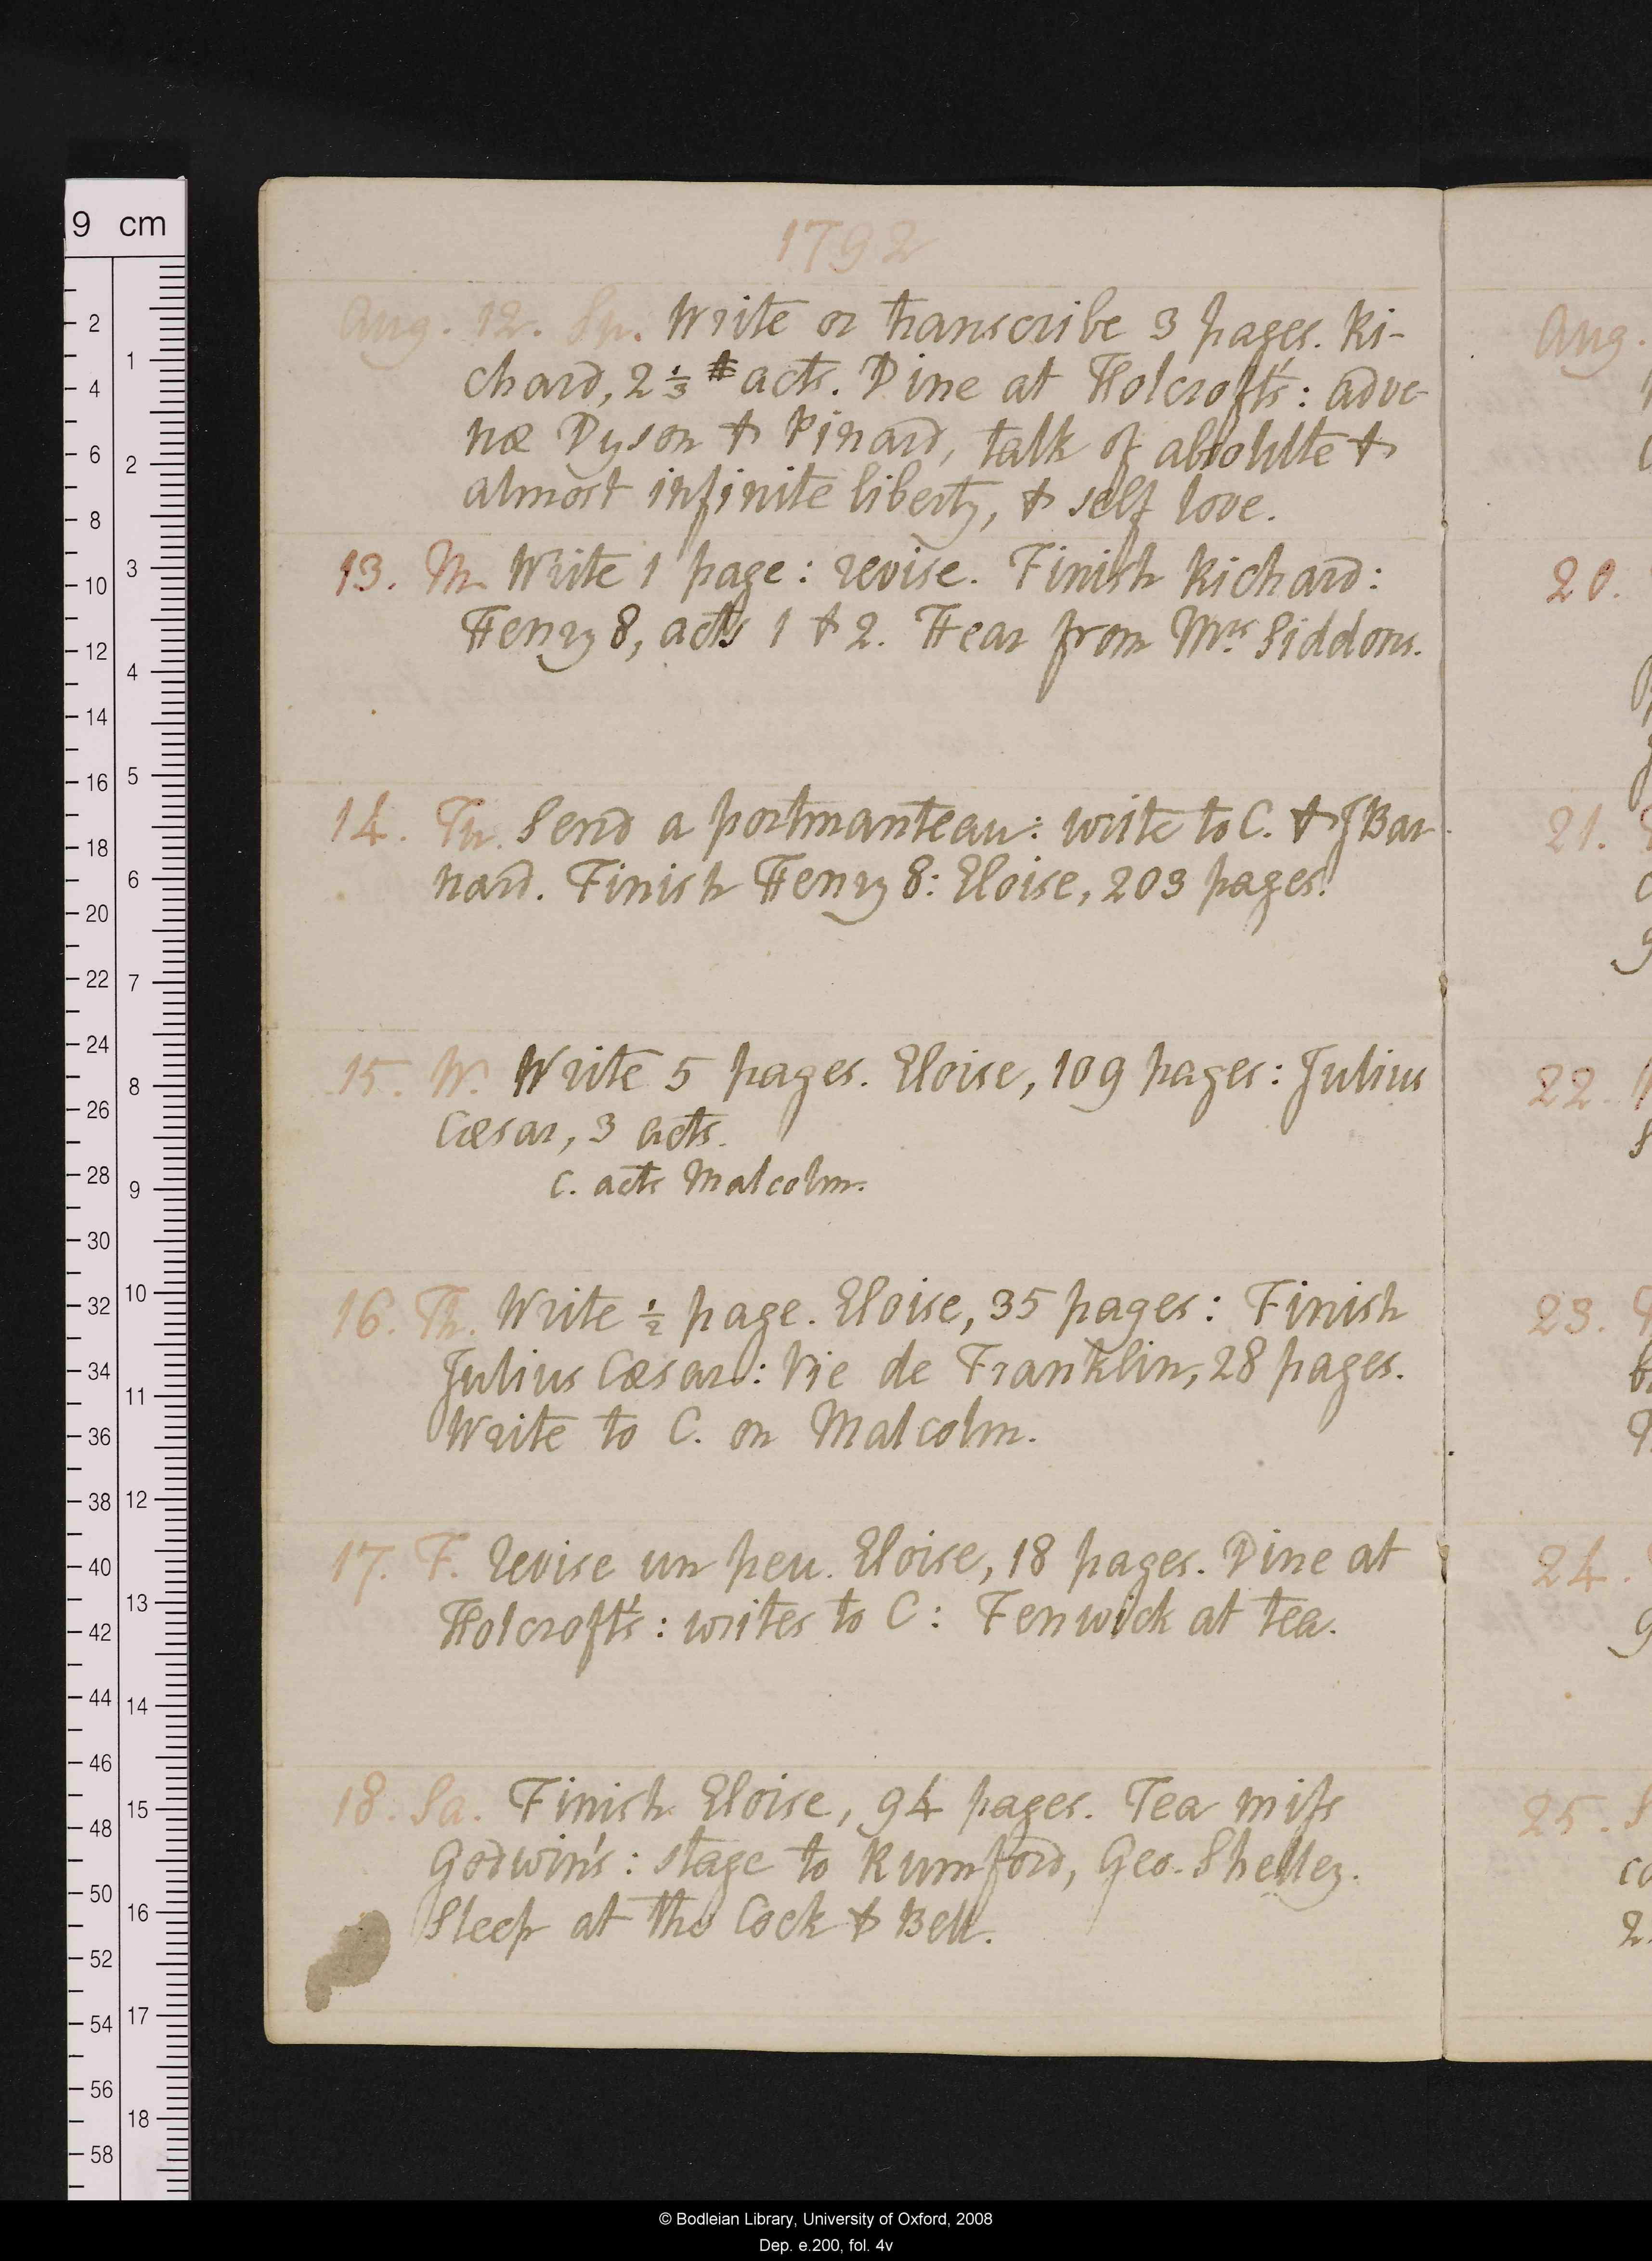 1792
Aug. 12. Su. Write or transcribe 3 pages. Ri-
chard, 2 1/3 acts. Dine at Holcroft's: adve-
næ Dyson & Pinard, talk of absolute &
almost infinite liberty, & self love.
13. M. Write 1 page: revise. Finish Richard:
Henry 8, acts 1 & 2. Hear from Mrs Siddons.
14. Tu. Send a portmanteau: write to C. & J Bar
nard. Finish Henry 8: Eloise, 203 pages.
15. W. Write 5 pages. Eloise, 109 pages: Julius
Cæsar, 3 acts.
C. acts Malcolm.
16. Th. Write 1/2 page. Eloise, 35 pages: Finish
Julius Cæsar: Vie de Franklin, 28 pages.
Write to C. on Malcolm.
17. F. Revise un peu. Eloise, 18 pages. Dine at
Holcroft's: writes to C: Fenwick at tea.
18. Sa. Finish Eloise, 94 pages. Tea miss
Godwin's: stage to Rumford, Geo. Shelley.
Sleep at the Cock & Bell.
Aug.
20.
21.
22.
23.
24.
25.
9 cm
2
4
6
8
10
12
14
16
18
20
22
24
26
28
30
32
34
36
38
40
42
44
46
48
50
52
54
56
58
1
2
3
4
5
6
7
8
9
10
11
12
13
14
15
16
17
18
© Bodleian Library, University of Oxford, 2008
Dep. e.200, fol. 4v